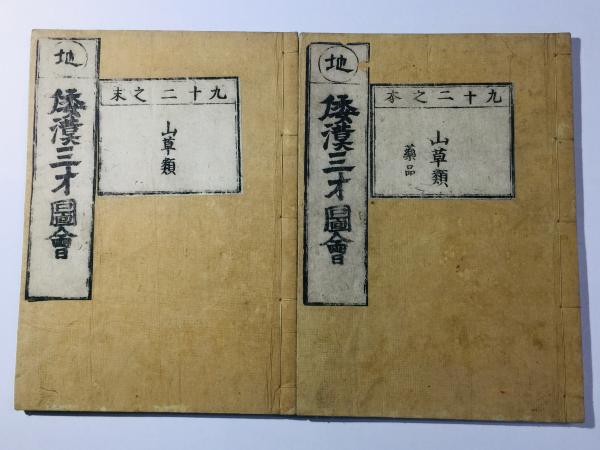 地
倭漢三才圖會
九十二之本
山草類
藥品
地
倭漢三才圖會
九十二之末
山草類